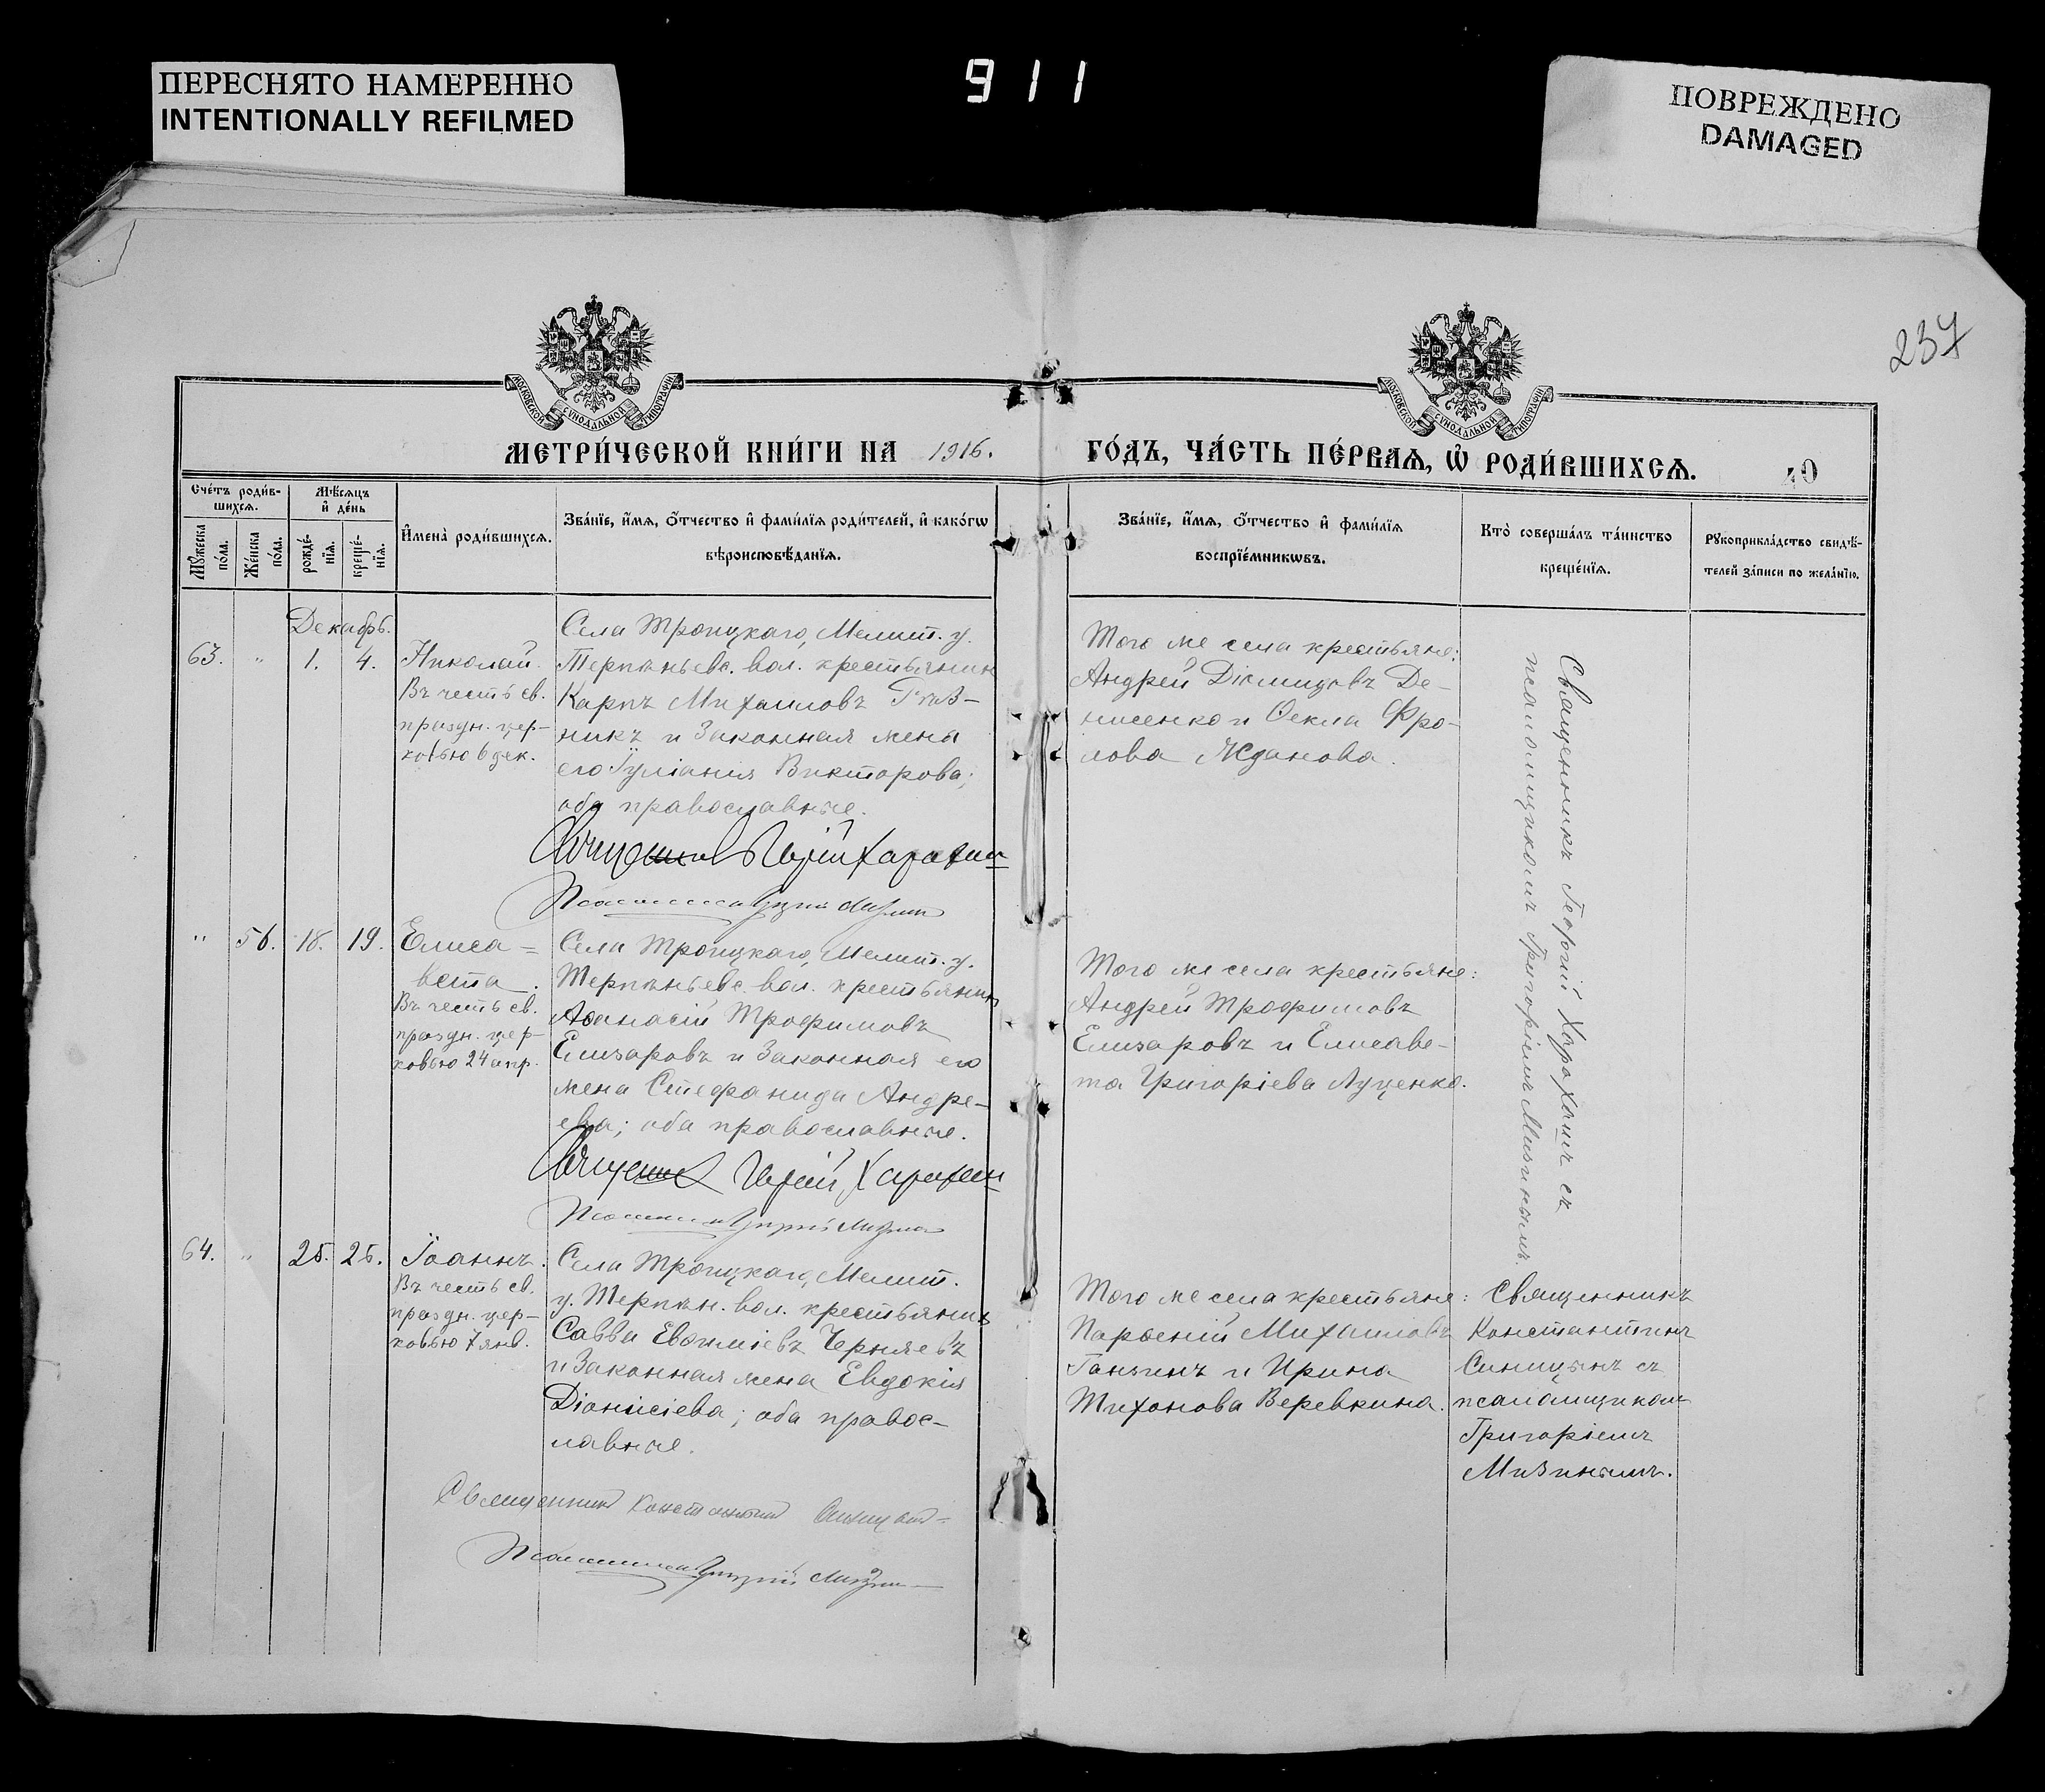 ПЕРЕСНЯТО НАМЕРЕННО
INTENTIONALLY REFILMED
911
ПОВРЕЖДЕНО
DAMAGED
237
МОСКОВСКОЙ СУНОДАЛЬНОЙ ТИПОГРАФІИ
МОСКОВСКОЙ СУНОДАЛЬНОЙ ТИПОГРАФІИ
МЕТРИ́ЧЕСКОЙ КНИ́ГИ НА 1916.
ГО́ДЪ, ЧА́СТЬ ПЕ́РВАѦ, Ѡ҆ РОДИ́ВШИХСѦ.
40
Сче́тъ роди́в-
шихсѧ.
Мѣ́сѧцъ
и҆ де́нь
Мꙋ́жеска
по́ла.
Же́нска
по́ла.
рожде́-
нїѧ.
креще́-
нїѧ.
И҆мена̀ роди́вшихсѧ.
Зва́нїе, и҆́мѧ, ѻ҆́тчество и҆ фами́лїѧ роди́телей, и҆ како́гѡ
вѣроисповѣ́данїѧ.
Зва́нїе, и҆́мѧ, ѻ҆́тчество и҆ фами́лїѧ
воспрїе́мникѡвъ.
Кто̀ соверша́лъ та́инство
креще́нїѧ.
Рꙋкоприкла́дство свидѣ́-
телей за́писи по жела́нїю.
Декабрь.
63. " 1. 4.
Николай.
Въ честь св.
праздн. цер-
ковью 6 дек.
Села Троицкаго, Мелит. у.
Терпѣньевс. вол. крестьянин
Карпъ Михаиловъ Гнѣв-
никъ и Законная жена
его Іуліания Викторова;
оба православные.
Того же села крестьяне:
Андрей Діомидовъ Де-
нисенко и Ѳекла Фро-
лова Жданова.
Священникъ Георгій Харахашъ съ
псаломщикомъ Григоріемъ Мизинымъ.
" 56. 18. 19.
Елиса=
вета.
Въ честь св.
праздн. цер-
ковью 24 апр.
Села Троицкаго, Мелит. у.
Терпѣньевс. вол. крестьянин
Аѳанасій Трофимовъ
Елизаровъ и Законная его
жена Стефанида Андре-
ева; оба православные.
Того же села крестьяне:
Андрей Трофимовъ
Елизаровъ и Елисаве-
та Григоріева Луценко.
64. " 25. 25.
Іоаннъ.
Въ честь св.
праздн. цер-
ковью 7 янв.
Села Троицкаго, Мелит.
у. Терпѣн. вол. крестьянин
Савва Евѳиміевъ Черняевъ
и Законная жена Евдокія
Діонисіева; оба правос-
лавные.
Того же села крестьяне:
Парѳеній Михаиловъ
Ганзинъ и Ирина
Тихонова Веревкина.
Священникъ
Константинъ
Синицынъ съ
псаломщиком
Григоріемъ
Мизинымъ.
Священник Константин Синицын